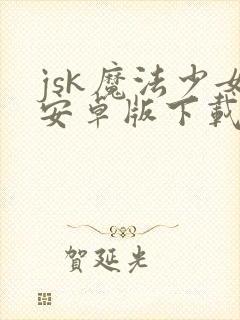 jsk魔法少女
安卓版下载
贺延光